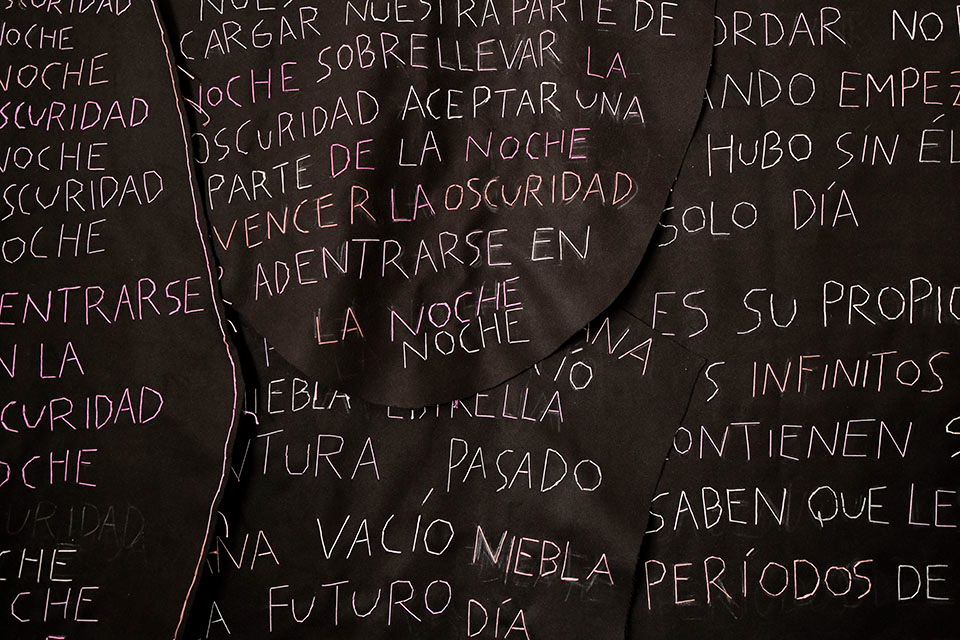 OSCURIDAD
NOCHE
NOCHE
SCURIDAD
NOCHE
SCURIDAD
OCHE
ENTRARSE
N LA
CURIDAD
OCHE
URIDAD
CHE
CHE
CARGAR NUESTRA PARTE DE
NOCHE SOBRELLEVAR LA
OSCURIDAD ACEPTAR UNA
PARTE DE LA NOCHE
VENCER LA OSCURIDAD
ADENTRARSE EN
LA NOCHE
NOCHE
ANA
IEBLA ESTRELLA
TURA PASADO
ANA VACÍO NIEBLA
A FUTURO DÍA
ORDAR NO
ANDO EMPEZ
HUBO SIN ÉL
SOLO DÍA
ES SU PROPIO
S INFINITOS
ONTIENEN S
SABEN QUE LE
PERÍODOS DE